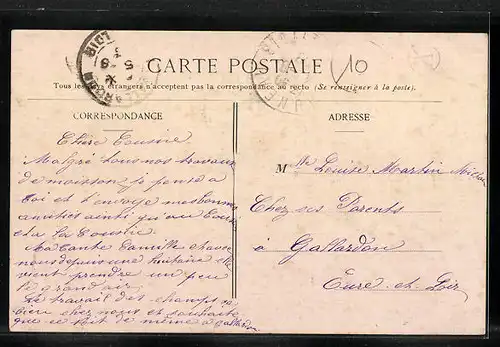 CARTE POSTALE
10
Tous les pays étrangers n'acceptent pas la correspondance au recto (Se renseigner à la poste).
CORRESPONDANCE
Chère Cousine
Malgré tous nos travaux
de moisson je pense a
toi et t'envoye mes bonnes
amitiés ainsi qu'au Cousin
et a la Cousine
Ma Tante Camille est avec
nous depuis une huitaine elle
vient prendre un peu
le grand air
Le travail des champs va
bien chez nous et souhaite
que ce soit de même a Gallardon
ADRESSE
Mlle Louise Martin
Chez ses Parents
à Gallardon
Eure-et-Loir